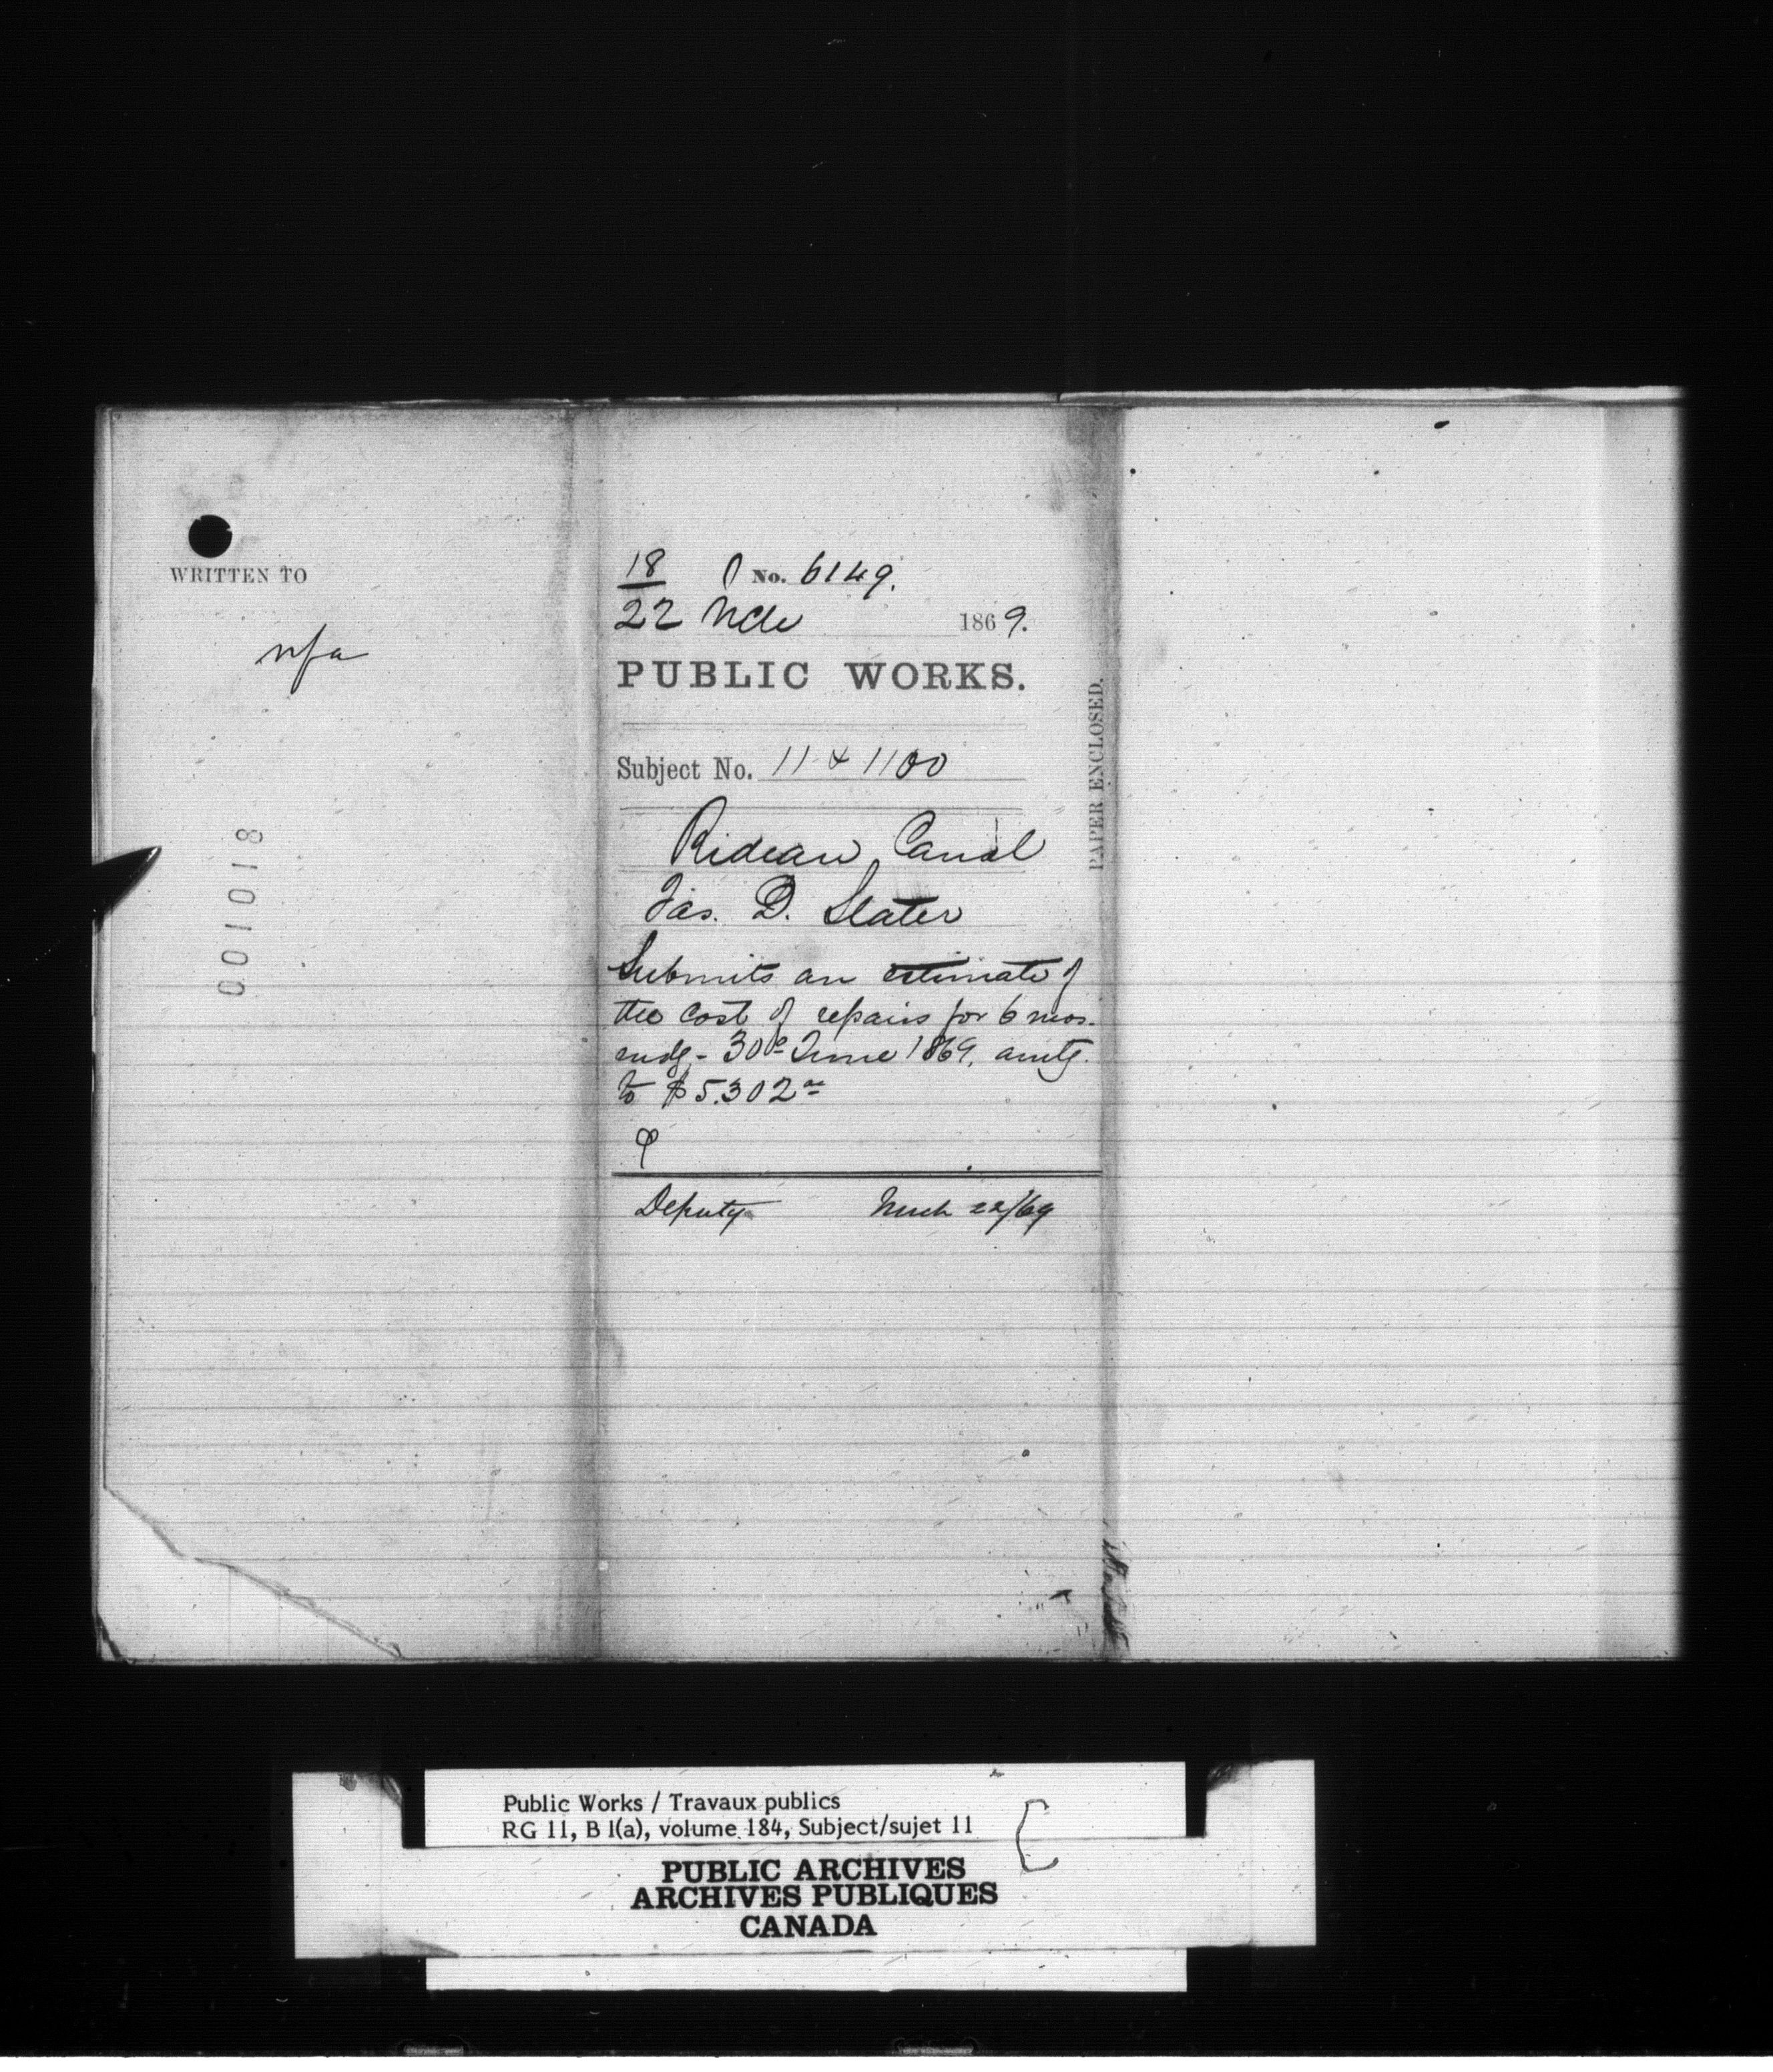 WRITTEN TO
nfa
001018
18 No. 6149.
22 Mch 1869.
PUBLIC WORKS.
Subject No. 11 & 1100
PAPER ENCLOSED.
Rideau Canal
Jas. D. Slater
Submits an estimate of
the cost of repairs for 6 mos.
endg - 30th June 1869, amtg.
to $5.302
Deputy March 22/69
Public Works / Travaux publics
RG 11, B 1(a), volume 184, Subject/sujet 11
PUBLIC ARCHIVES
ARCHIVES PUBLIQUES
CANADA